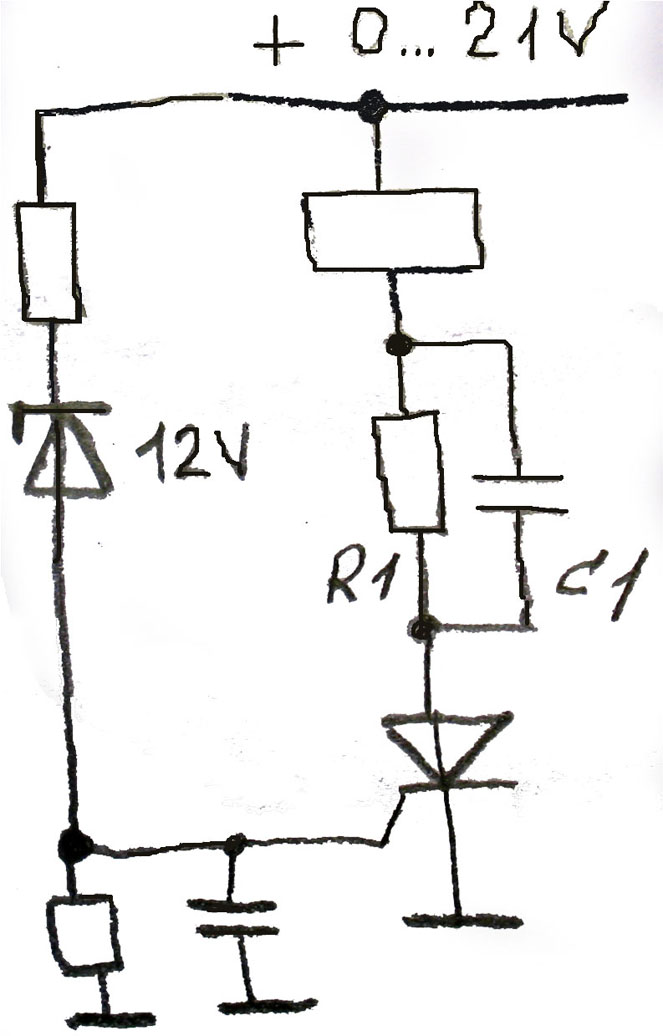 + 0... 21V
12V
R1
C1